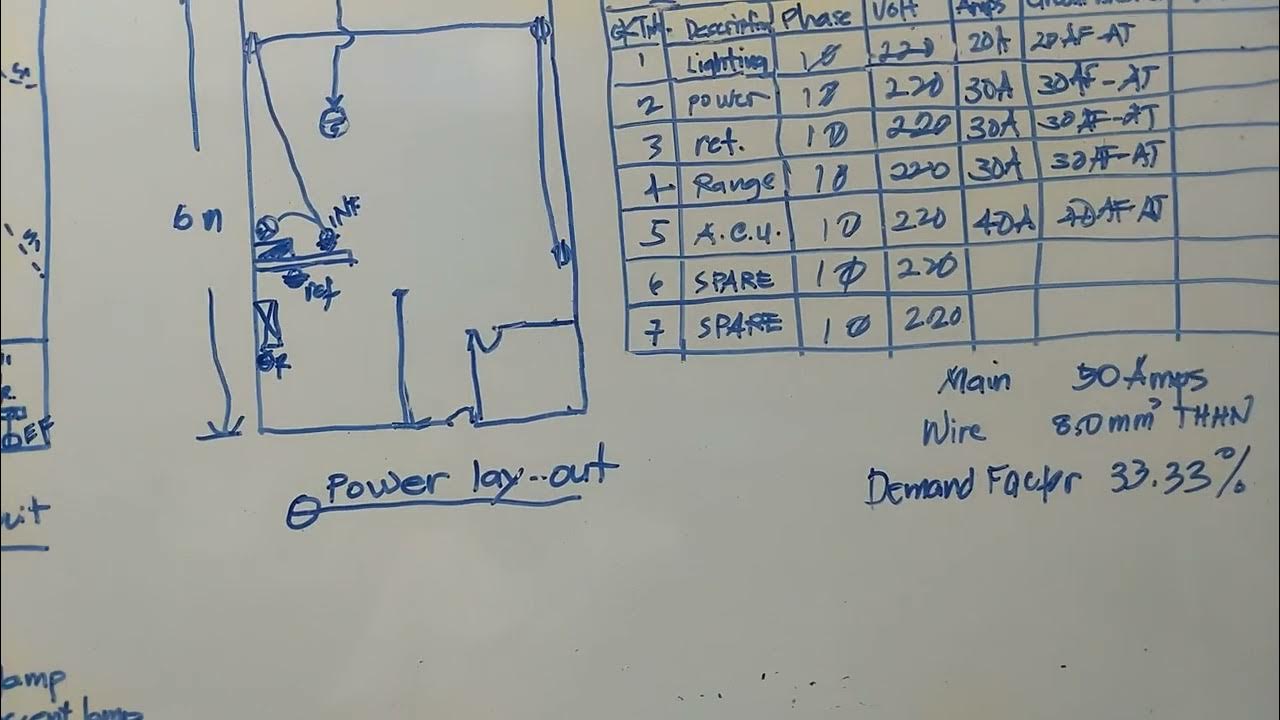 CKT Description Phase Volt Amps
1 Lighting 1Ø 220 20A 20AF-AT
2 power 1Ø 220 30A 30AF-AT
3 ref. 1Ø 220 30A 30AF-AT
4 Range 1Ø 220 30A 30AF-AT
5 A.C.U. 1Ø 220 40A 40AF-AT
6 SPARE 1Ø 220
7 SPARE 1Ø 220
6m
ref
EF
Main 50 Amps
Wire 8.0mm² THHN
Demand Factor 33.33%
Power lay-out
uit
lamp